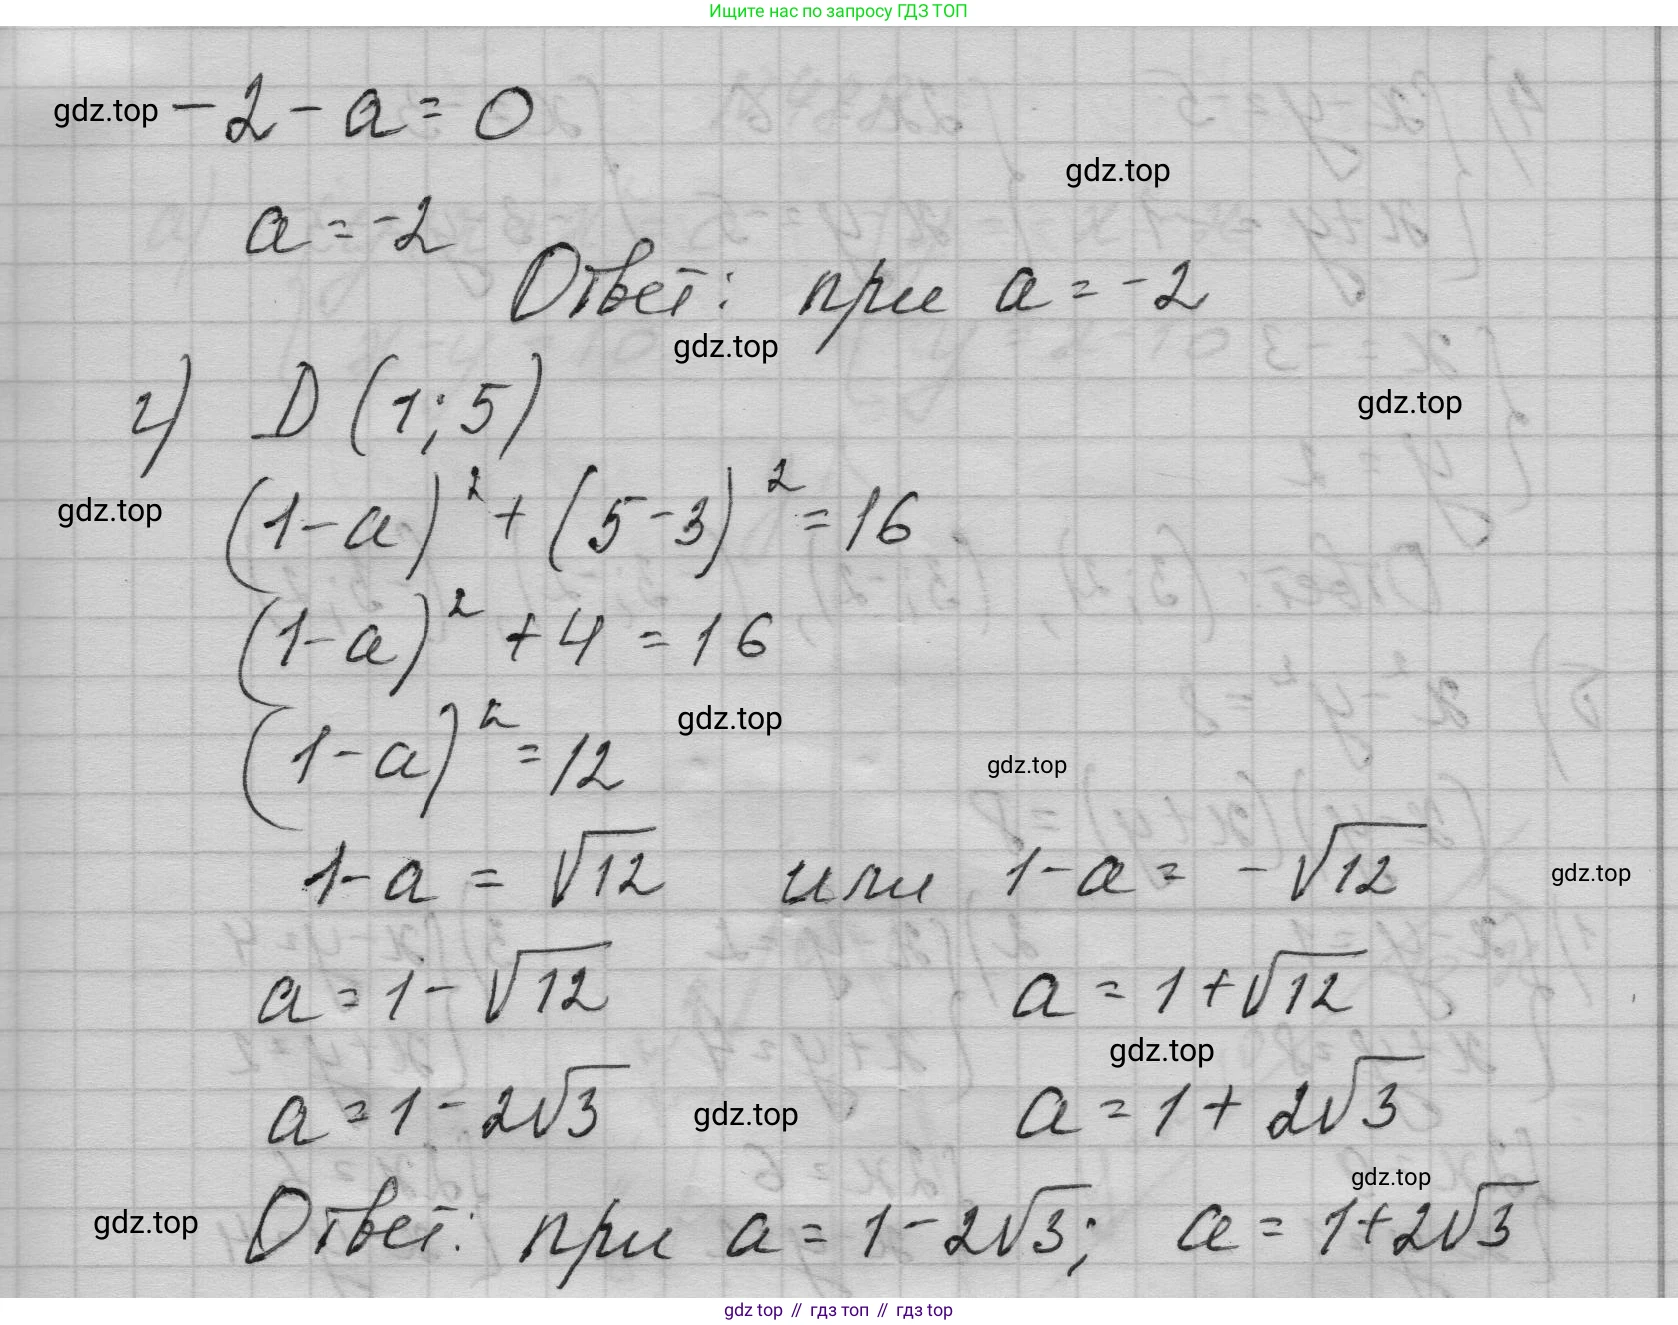 Ищите нас по запросу ГДЗ ТОП
gdz.top -2-a=0
gdz.top
a=-2
Ответ: при a=-2
gdz.top
г) D(1;5)
gdz.top
gdz.top
(1-a)²+(5-3)²=16
(1-a)²+4=16
gdz.top
(1-a)²=12
gdz.top
1-a=√12 или 1-a=-√12
gdz.top
a=1-√12 a=1+√12
gdz.top
a=1-2√3 gdz.top a=1+2√3
gdz.top
gdz.top Ответ: при a=1-2√3; a=1+2√3
gdz top // гдз топ // гдз top